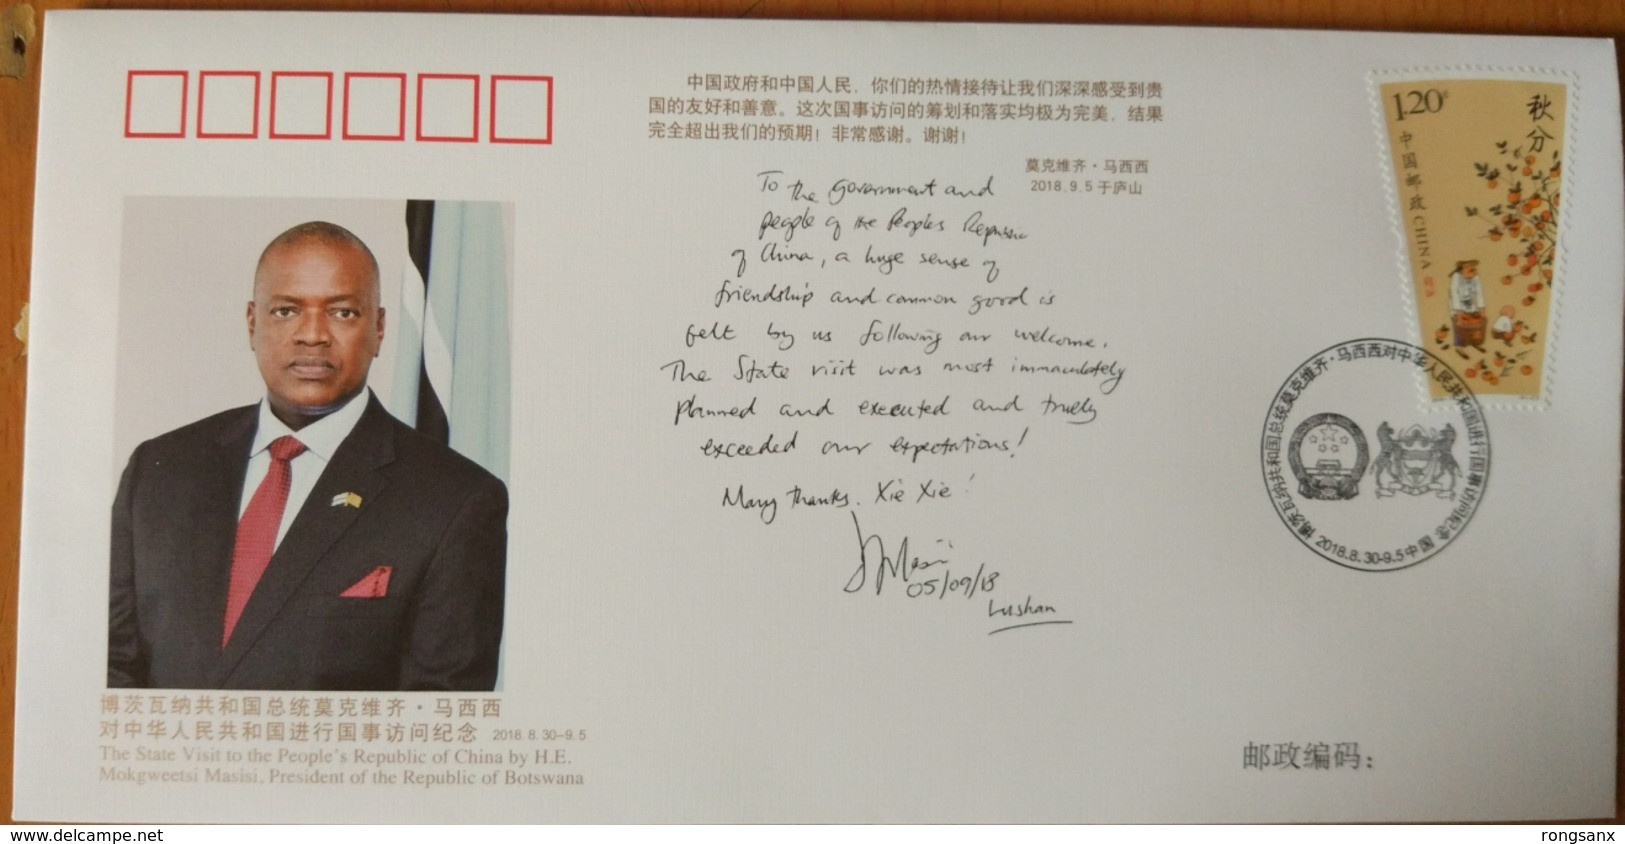 中国政府和中国人民，你们的热情接待让我们深深感受到贵
国的友好和善意。这次国事访问的筹划和落实均极为完美，结果
完全超出我们的预期！非常感谢。谢谢！
莫克维齐·马西西
2018.9.5于庐山
To the government and
people of the Peoples Republic
of China, a huge sense of
friendship and common good is
felt by us following our welcome.
The State visit was most immaculately
planned and executed and truely
exceeded our expectations!
Many thanks. Xie Xie!
05/09/18
Lushan
1.20
秋分
中国邮政 CHINA
博茨瓦纳共和国总统莫克维齐·马西西对中华人民共和国进行国事访问纪念
2018.8.30-9.5 中国
博茨瓦纳共和国总统莫克维齐·马西西
对中华人民共和国进行国事访问纪念 2018.8.30-9.5
The State Visit to the People's Republic of China by H.E.
Mokgweetsi Masisi, President of the Republic of Botswana
邮政编码：
www.delcampe.net
rongsanx